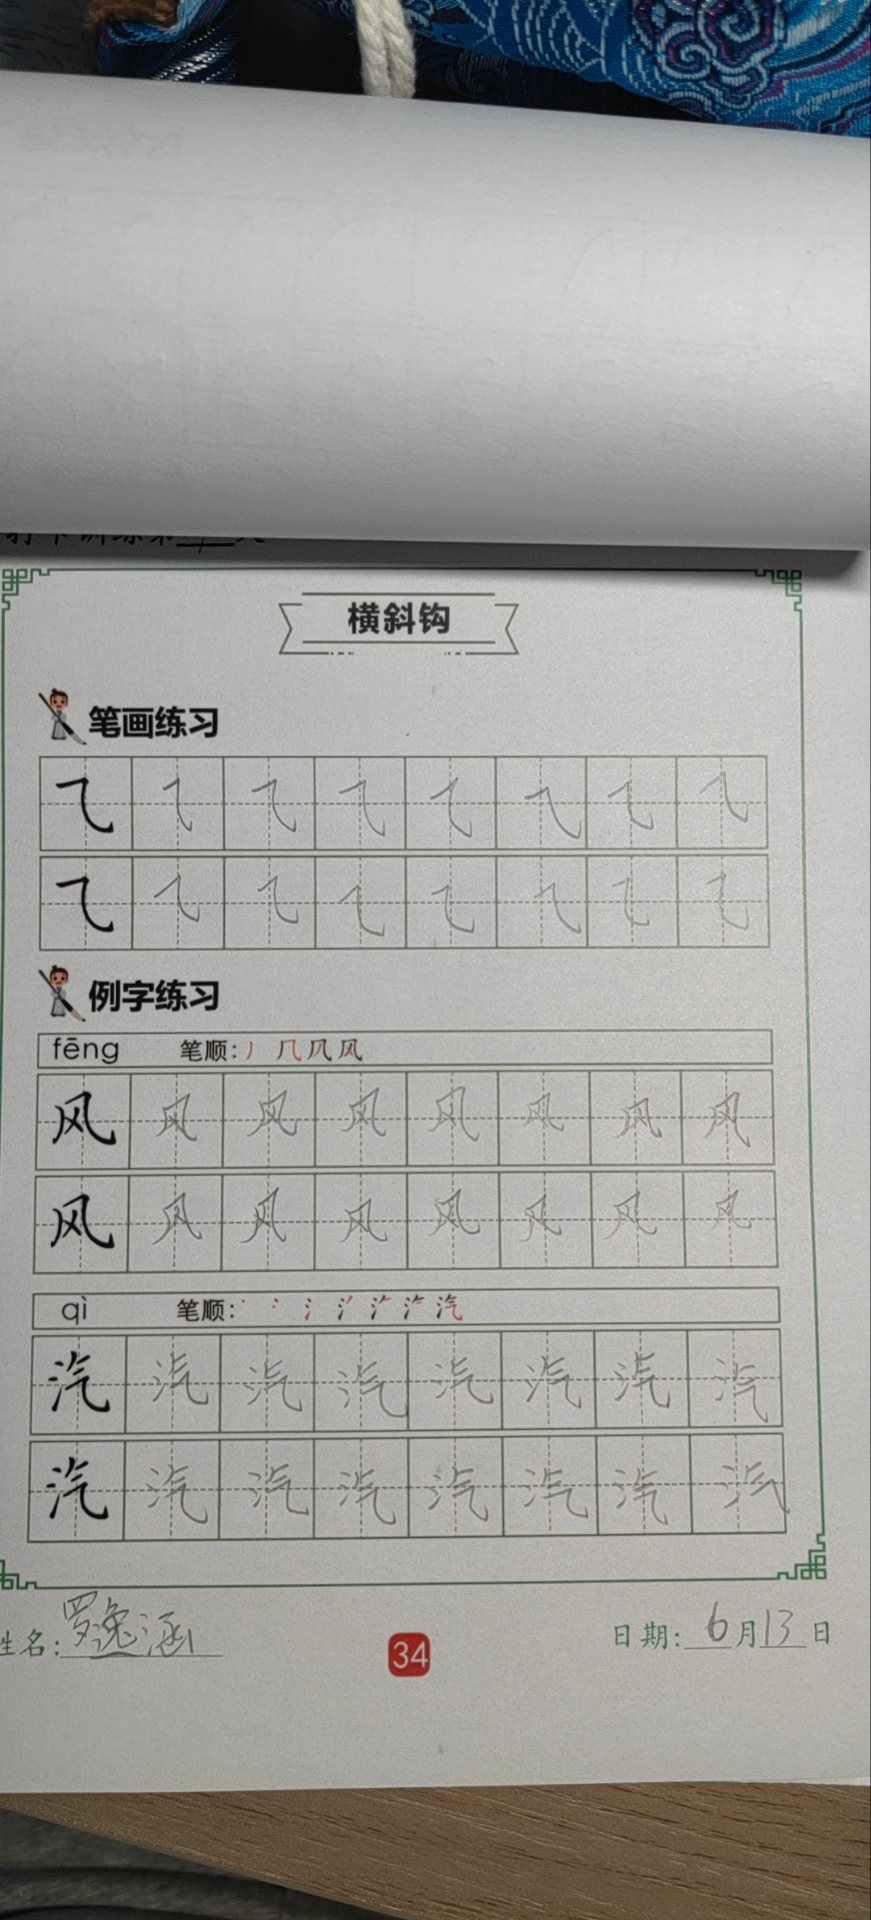 横斜钩
笔画练习
㇈ ㇈ ㇈ ㇈ ㇈ ㇈ ㇈ ㇈
㇈ ㇈ ㇈ ㇈ ㇈ ㇈ ㇈ ㇈
例字练习
fēng 笔顺:丿 几 凤 风
风 风 风 风 风 风 风 风
风 风 风 风 风 风 风 风
qì 笔顺:
汽 汽 汽 汽 汽 汽 汽 汽
汽 汽 汽 汽 汽 汽 汽 汽
姓名:罗逸涵 34 日期:6月13日